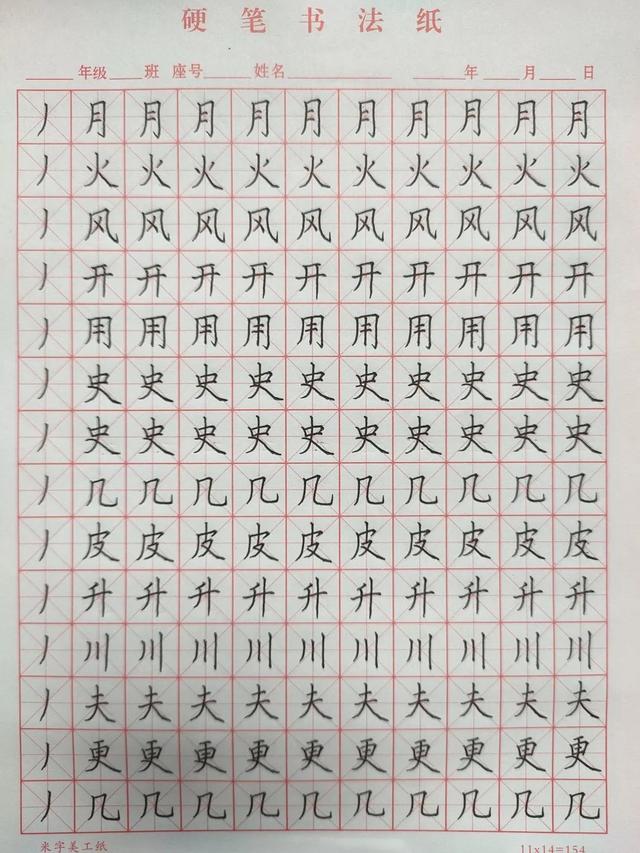 硬笔书法纸
年级 班 座号 姓名 年 月 日
丿月月月月月月月月月月
丿火火火火火火火火火火
丿风风风风风风风风风风
丿开开开开开开开开开开
丿用用用用用用用用用用
丿史史史史史史史史史史
丿史史史史史史史史史史
丿几几几几几几几几几几
丿皮皮皮皮皮皮皮皮皮皮
丿升升升升升升升升升升
丿川川川川川川川川川川
丿夫夫夫夫夫夫夫夫夫夫
丿更更更更更更更更更更
丿几几几几几几几几几几
米字美工纸 11x14=154